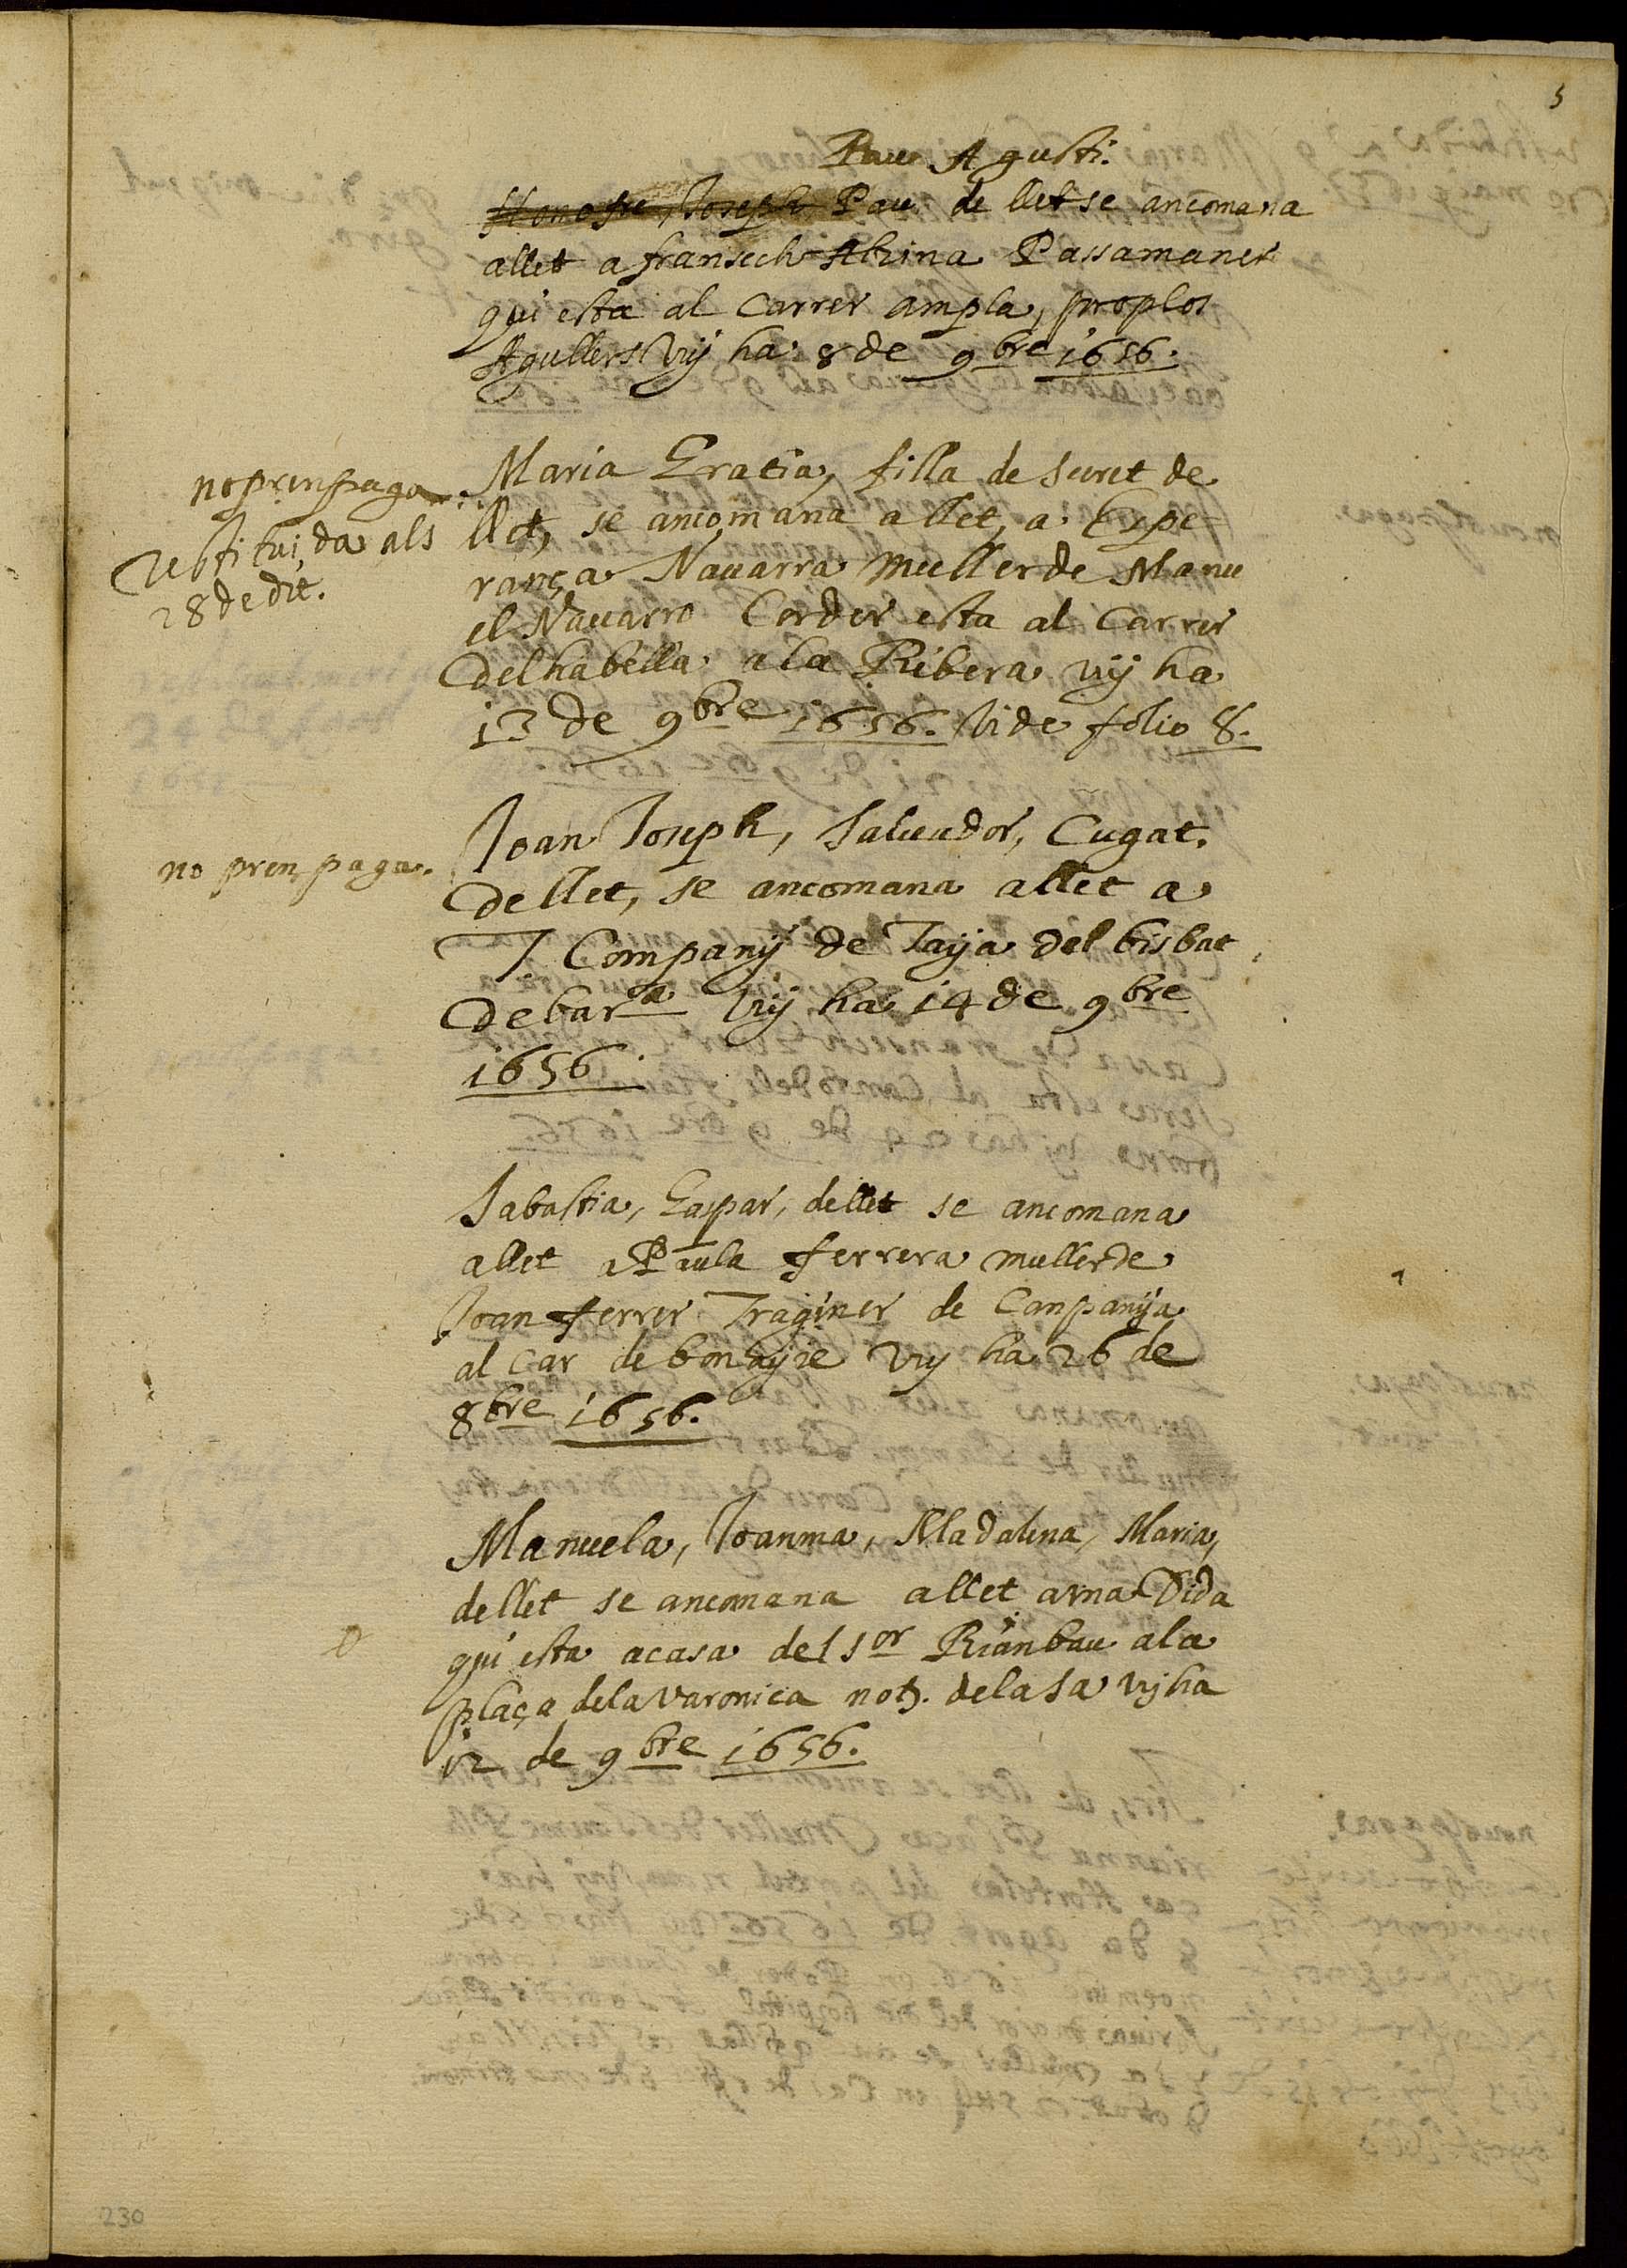 5
Pau Agusti.
Honofre, Joseph Pau de llet se ancomana
allet a fransech Alzina Passamaner
qui esta al Carrer ampla, prop los
Agullers Vuy ha 8 de 9bre 1656.
no pren paga.
restituida als
28 de dit.
Maria Gratia, filla de secret de
llet, se ancomana allet, a Espe-
rança Nauarra muller de Manu
el Nauarro Corder esta al Carrer
del habella a la Ribera vuy ha
13 de 9bre 1656. Vide folio 8.
no pren paga.
Joan Joseph, Saluador, Cugat.
de llet, se ancomana allet a
T Company de Taya del bisbat
de barna Vuy ha 14 de 9bre
1656.
Sabastia, Gaspar, de llet se ancomana
allet a Paula ferrera muller de
Joan ferrer Traginer de Companya
al Car de bonayre Vuy ha 26 de
8bre 1656.
Manuela, Joanma, Madalena, Maria,
de llet se ancomana allet a vna Dida
qui esta a casa del Sor Rianbau a la
plaça de la Varonica not. de la Sa Vuy ha
12 de 9bre 1656.
230